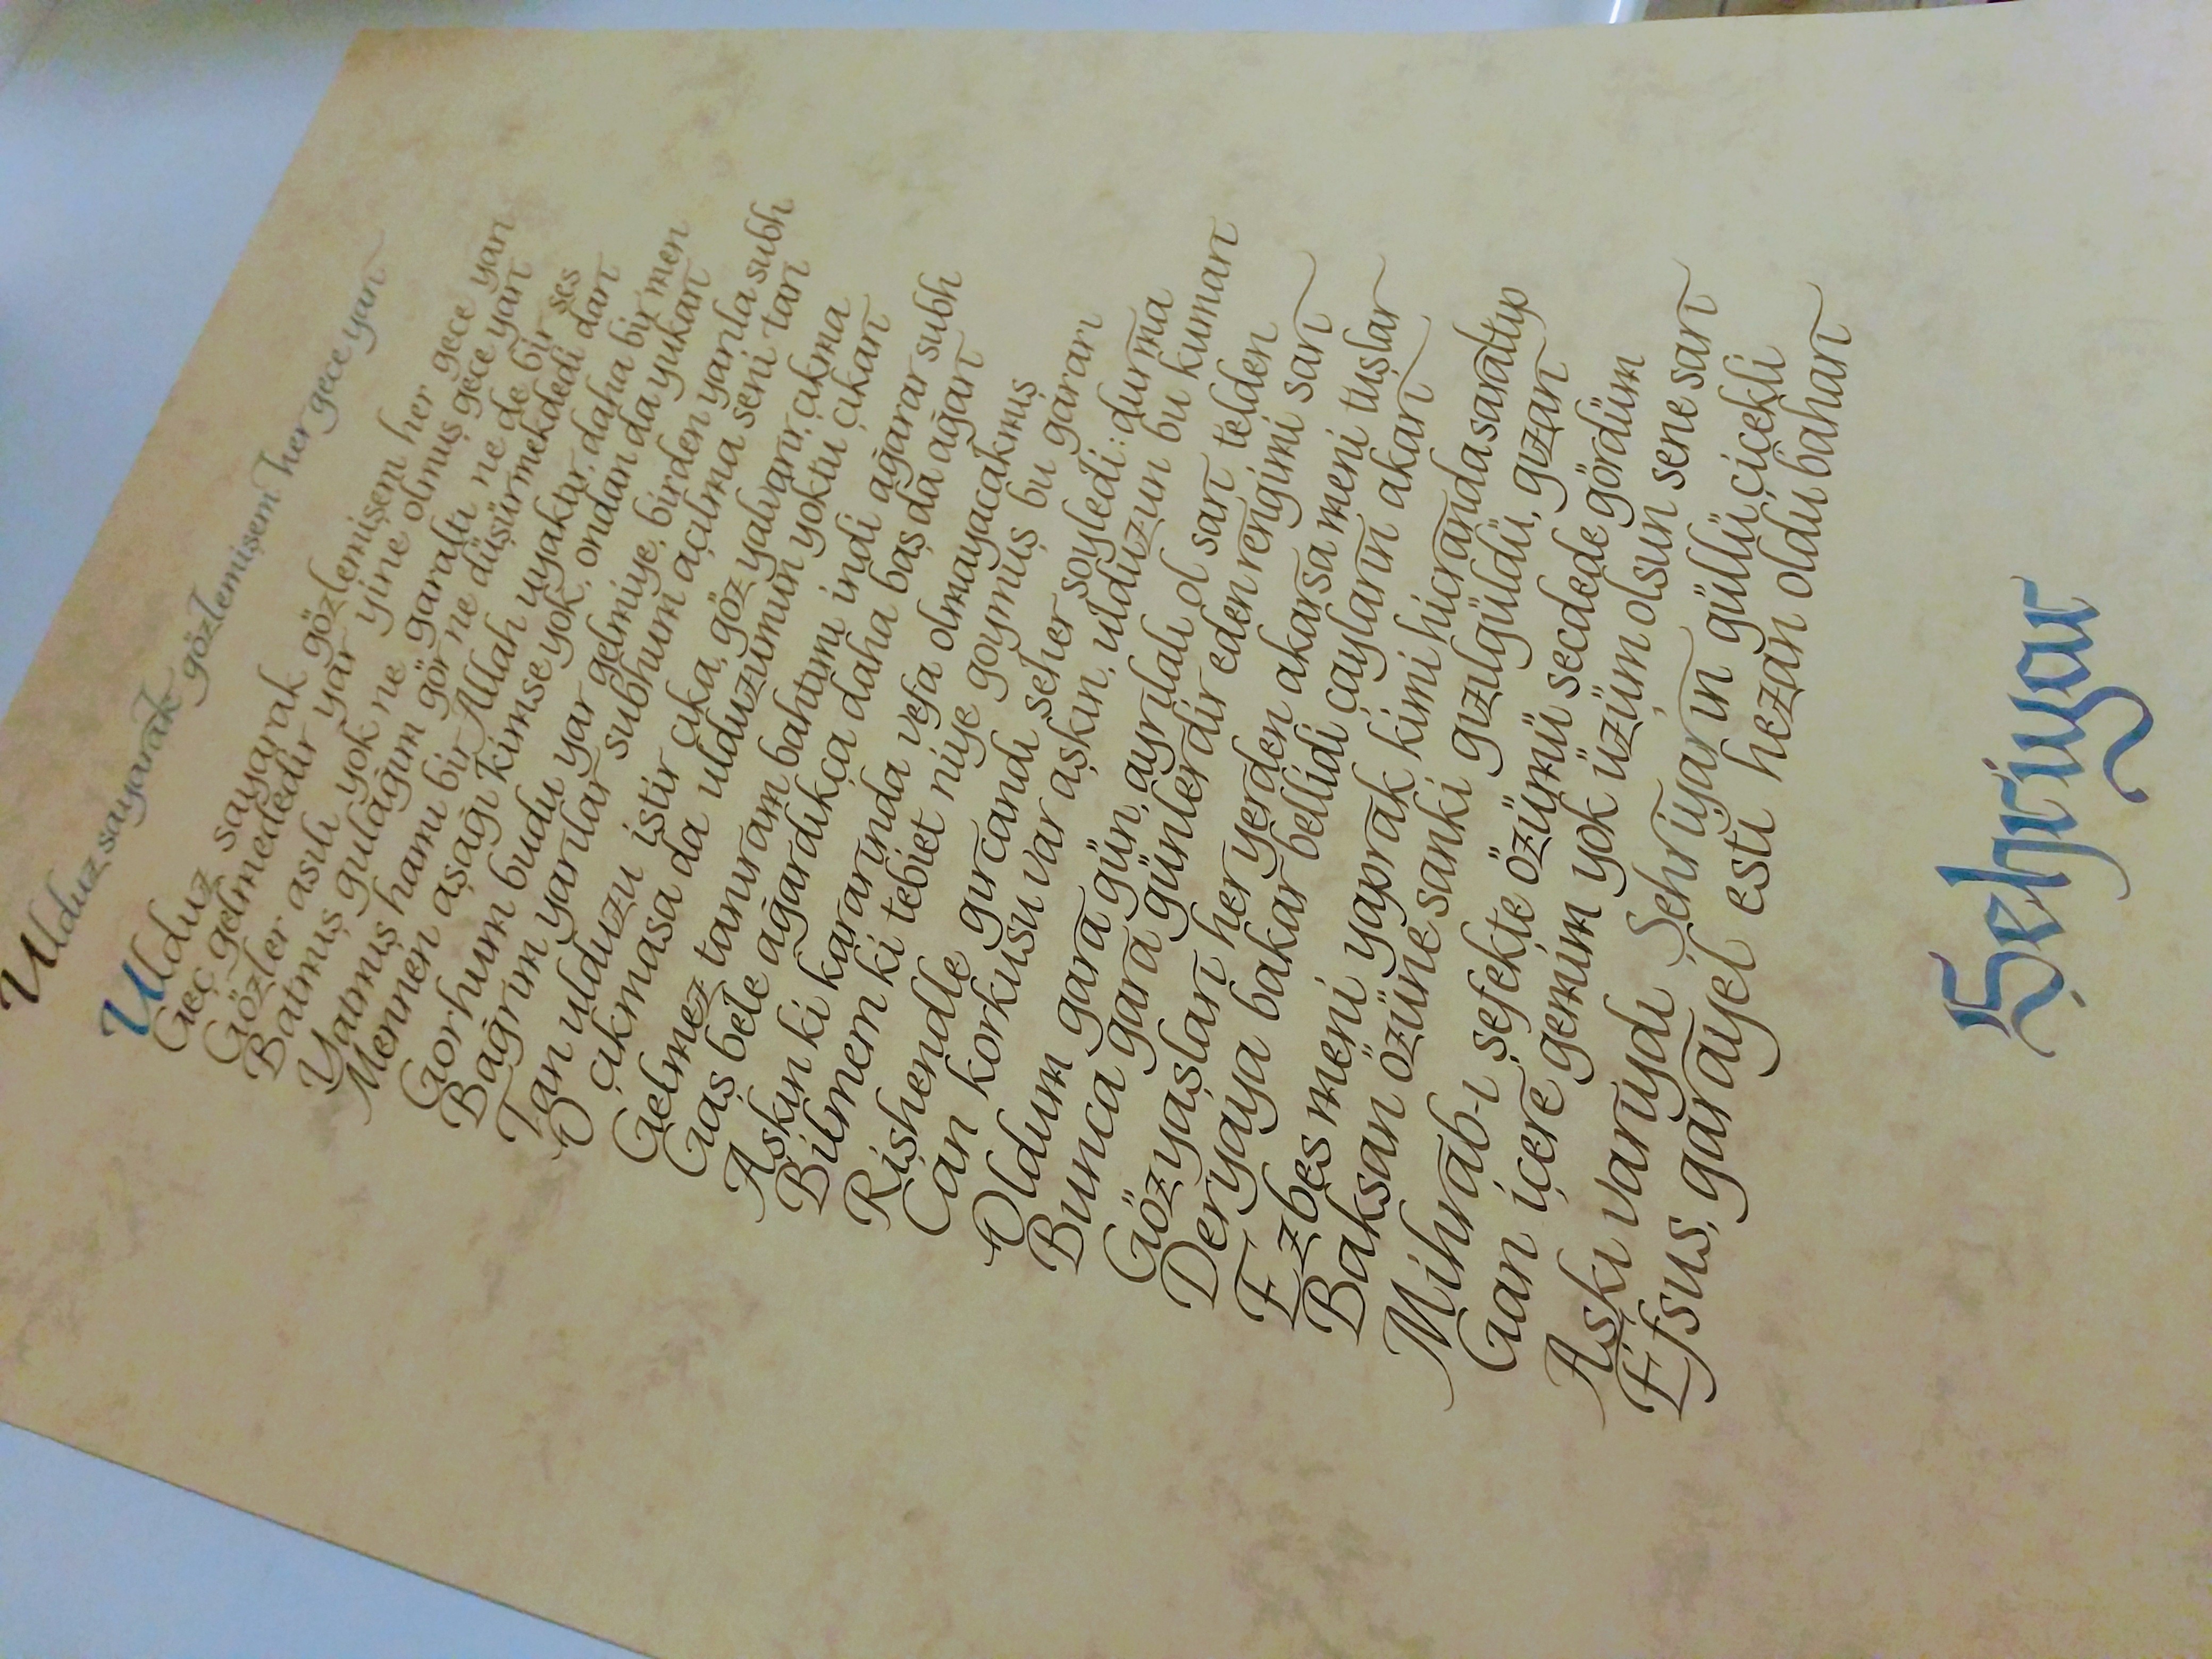 Ulduz sayarak gözlemişem her gece yarı
Ulduz sayarak gözlemişem her gece yarı
Geç gelmededir yar yine olmuş gece yarı
Gözler asılı yok ne garaltı ne de bir ses
Batmış gulağım gör ne düşürmekdedi darı
Yatmış hamı bir Allah uyaktır, daha bir men
Mennen aşağı kimse yok, ondan da yukarı
Gorhum budu yar gelmiye, birden yarıla subh
Bağrım yarılar subhum açılma seni tarı
Tan ulduzu istir çıka, göz yalvarır, çıkma
O çıkmasa da ulduzumun yoktu çıkarı
Gelmez tanıram bahtımı indi ağarar subh
Gaş bele ağardıkça daha baş da ağarı
Aşkın ki kararında vefa olmayacakmış
Bilmem ki tebiet niye goymuş bu gararı
Rişhendle gırcandı seher soyledi: durma
Can korkusu var aşkın, ulduzun bu kumarı
Oldum gara gün, ayrılalı ol sarı telden
Bunca gara günlerdir eden rengimi sarı
Gözyaşları her yerden akarsa meni tuşlar
Deryaya bakar bellidi çayların akarı
Ezbes meni yaprak kimi hicranda saratıp
Baksan özüne sanki gızılgüldü, gızarı
Mihrab-ı şefekte özümü secdede gördüm
Gan içere gemim yok üzüm olsun sene sarı
Aşkı varıydı Şehriyarın güllü, çiçekli
Efsus, garayel esti hezan oldu baharı
Şehriyar